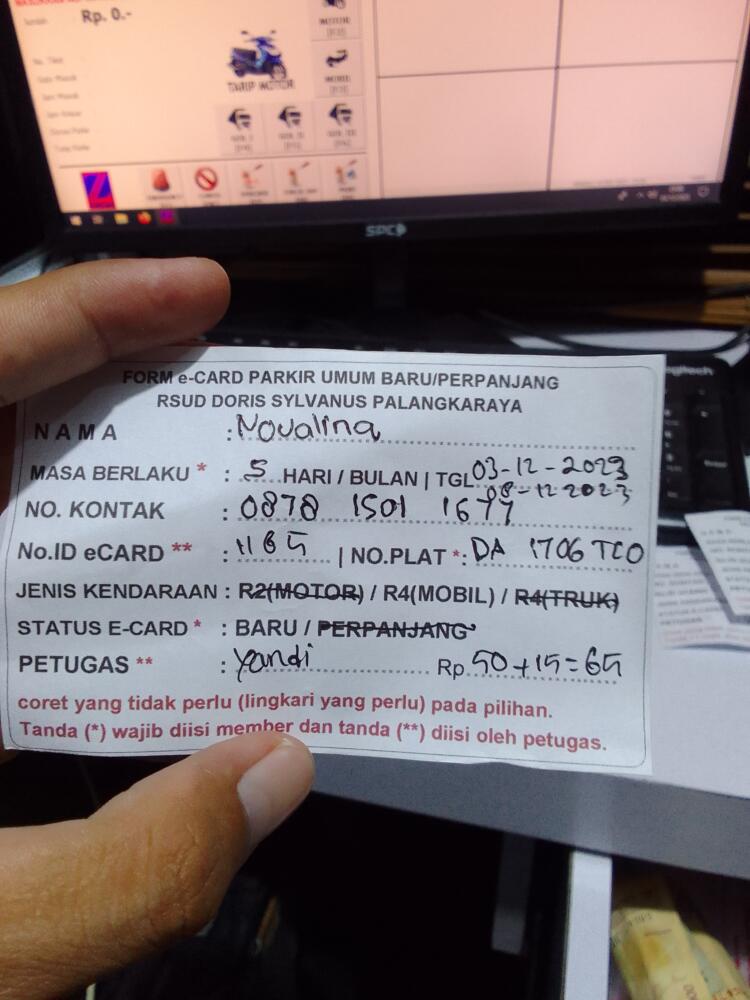 Rp. 0.-
MOTOR
TARIP MOTOR
MOBIL
SPC
FORM e-CARD PARKIR UMUM BARU/PERPANJANG
RSUD DORIS SYLVANUS PALANGKARAYA
NAMA : Novalina
MASA BERLAKU * : 5 HARI / BULAN | TGL 03-12-2023
08-12-2023
NO. KONTAK : 0878 1501 1677
No.ID eCARD ** : 1165 | NO.PLAT *: DA 1706 TCO
JENIS KENDARAAN : R2(MOTOR) / R4(MOBIL) / R4(TRUK)
STATUS E-CARD * : BARU / PERPANJANG
PETUGAS ** : Yandi Rp 50+15=65
coret yang tidak perlu (lingkari yang perlu) pada pilihan.
Tanda (*) wajib diisi member dan tanda (**) diisi oleh petugas.